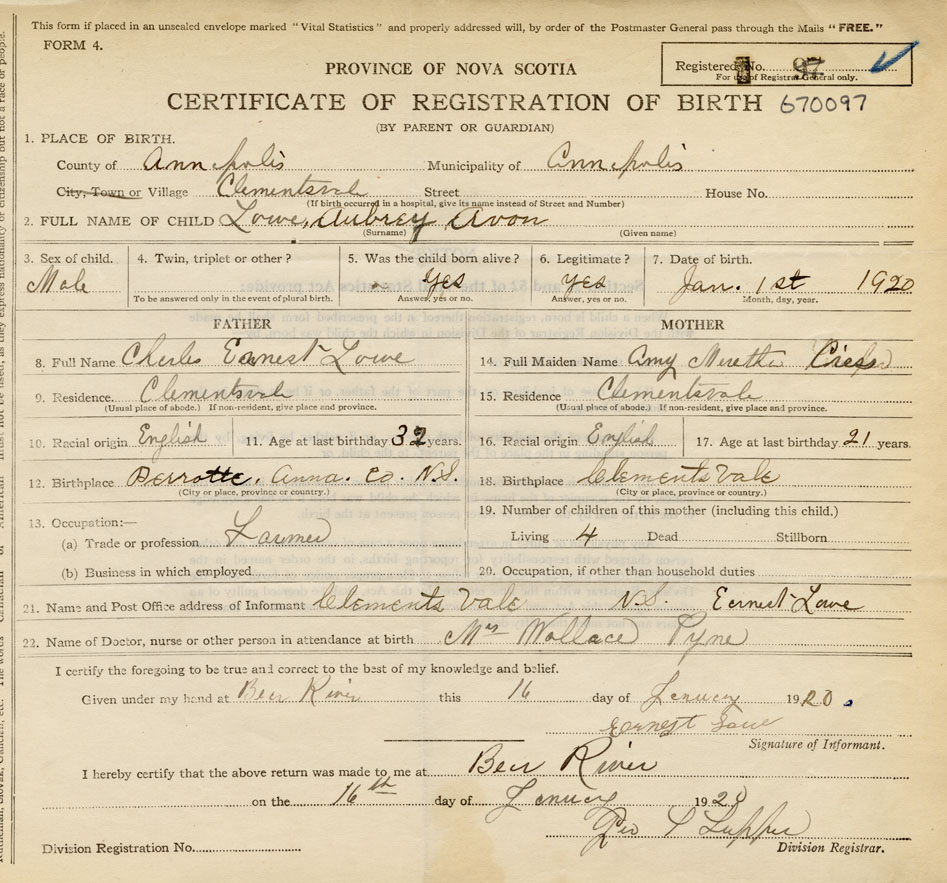 This form if placed in an unsealed envelope marked "Vital Statistics" and properly addressed will, by order of the Postmaster General pass through the Mails "FREE."
FORM 4.
Registered No. 97
For use of Registrar General only.
PROVINCE OF NOVA SCOTIA
CERTIFICATE OF REGISTRATION OF BIRTH 670097
(BY PARENT OR GUARDIAN)
1. PLACE OF BIRTH.
County of Annapolis Municipality of Annapolis
City, Town or Village Clementsvale Street House No.
(If birth occurred in a hospital, give its name instead of Street and Number)
2. FULL NAME OF CHILD Lowe, Aubrey Avon
(Surname) (Given name)
3. Sex of child. 4. Twin, triplet or other? 5. Was the child born alive? 6. Legitimate? 7. Date of birth.
Male Yes Yes Jan. 1st 1920
To be answered only in the event of plural birth. Answer, yes or no. Answer, yes or no. Month, day, year.
FATHER
8. Full Name Charles Earnest Lowe
9. Residence. Clementsvale
(Usual place of abode.) If non-resident, give place and province.
10. Racial origin English 11. Age at last birthday 32 years.
12. Birthplace Perrotte, Anna. Co. N.S.
(City or place, province or country.)
13. Occupation:—
(a) Trade or profession Farmer
(b) Business in which employed
MOTHER
14. Full Maiden Name Amy Meretha
15. Residence Clementsvale
(Usual place of abode.) If non-resident, give place and province.
16. Racial origin English 17. Age at last birthday 21 years.
18. Birthplace Clements Vale
(City or place, province or country.)
19. Number of children of this mother (including this child.)
Living 4 Dead Stillborn
20. Occupation, if other than household duties
21. Name and Post Office address of Informant Clements Vale N.S. Earnest Lowe
22. Name of Doctor, nurse or other person in attendance at birth Mrs Wallace Pyne
I certify the foregoing to be true and correct to the best of my knowledge and belief.
Given under my hand at Bear River this 16 day of January 1920.
Ernest Lowe
Signature of Informant.
I hereby certify that the above return was made to me at Bear River
on the 16th day of January 1920
Geo
Division Registration No. Division Registrar.